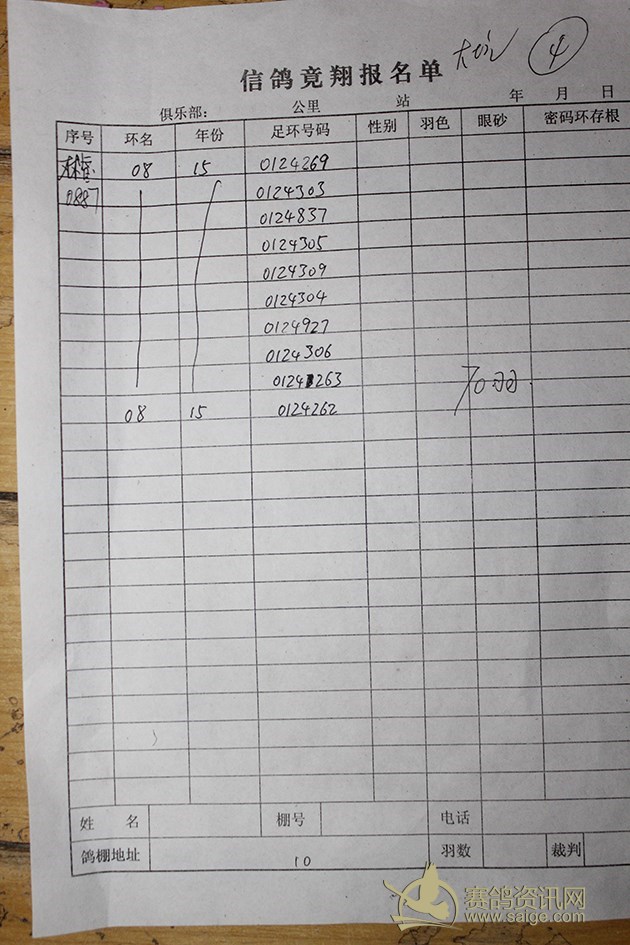 ④
信鸽竟翔报名单
俱乐部: 公里 站 年 月 日
序号 环名 年份 足环号码 性别 羽色 眼砂 密码环存根
08 15 0124269
0887 0124303
0124837
0124305
0124309
0124304
0124927
0124306
0124263 10羽
08 15 0124262
姓 名 棚号 电话
鸽棚地址 10 羽数 裁判
赛鸽资讯网
www.saige.com